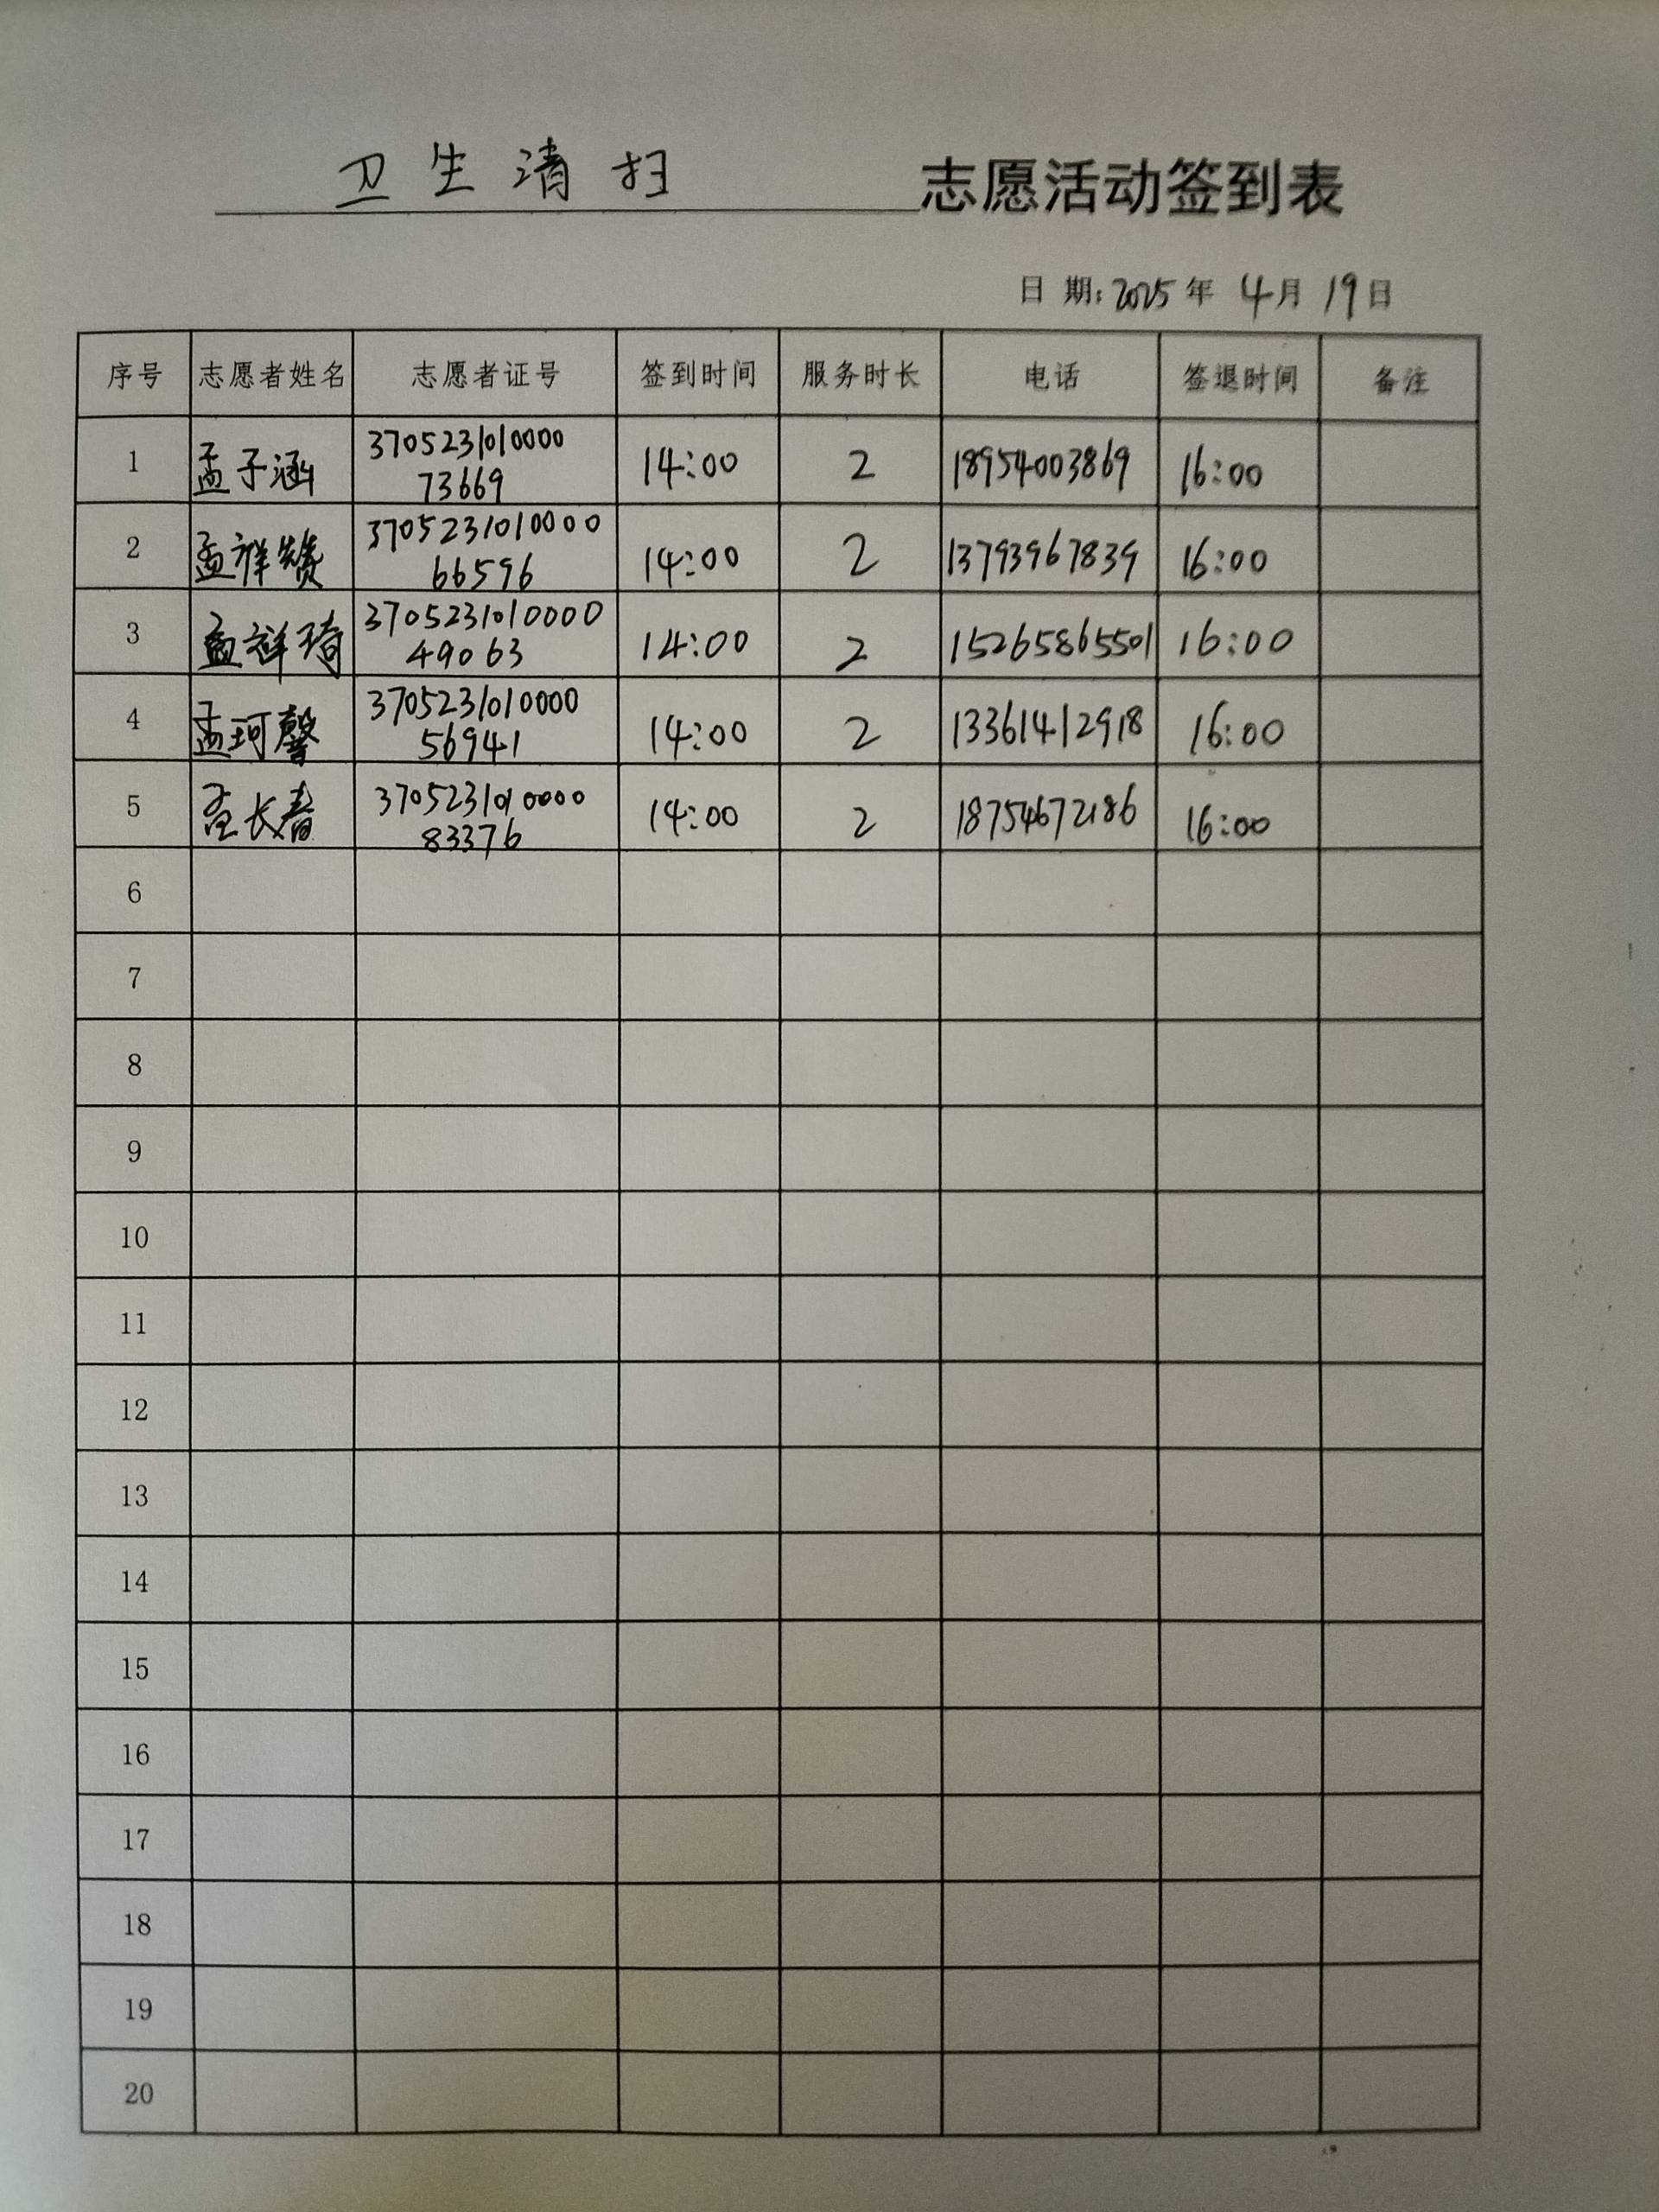 卫生清扫 志愿活动签到表
日期:2025年4月19日
序号 志愿者姓名 志愿者证号 签到时间 服务时长 电话 签退时间 备注
1 孟子涵 3705231010000 14:00 2 18954003869 16:00
73669
2 孟祥赞 3705231010000 14:00 2 13793967839 16:00
66596
3 孟祥琦 3705231010000 14:00 2 15265865501 16:00
49063
4 孟珂馨 3705231010000 14:00 2 13361412918 16:00
56941
5 长春 3705231010000 14:00 2 18754672186 16:00
83376
6
7
8
9
10
11
12
13
14
15
16
17
18
19
20